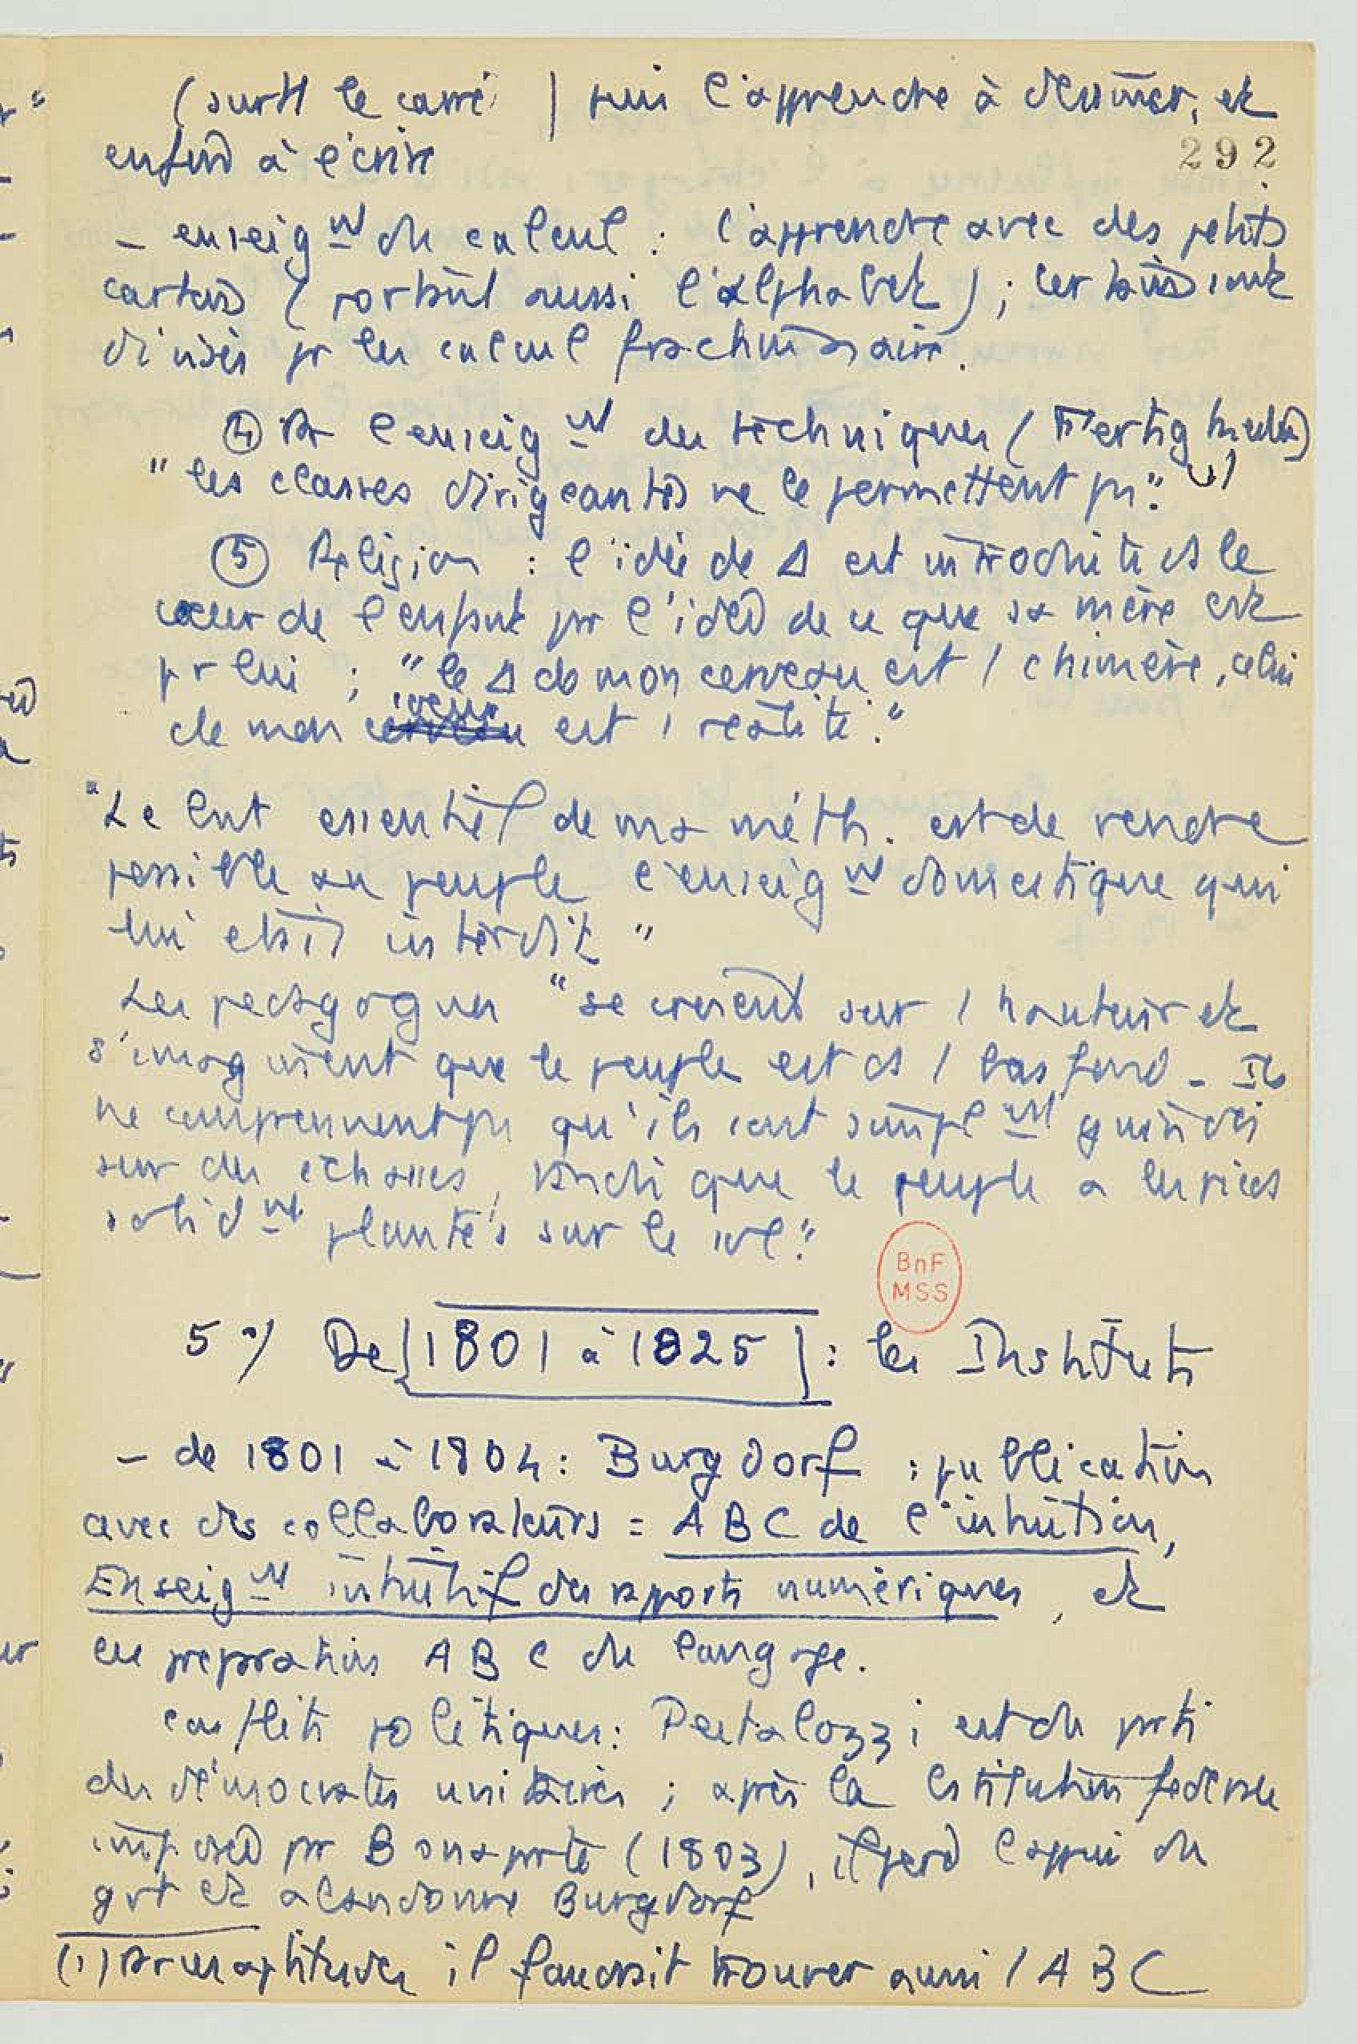 (surtt le carré ) puis l'apprendre à dessiner, et
292
enfin à écrire
- enseignt du calcul : l'apprendre avec des petits
cartons ( portant aussi l'alphabet) ; certains sont
divisés pr les calcul fractionnaire.
④ Pr l'enseignt des techniques ( Fertigkeiten)
"les classes dirigeantes ne le permettent pas" (1)
⑤ Religion : l'idée de Δ est introduite ds le
cœur de l'enfant pr l'idée de ce que sa mère est
pr lui ; "le Δ de mon cerveau est / chimère, celui
de mon cœur est / réalité."
"Le but essentiel de ma méth. est de rendre
possible au peuple l'enseignt domestique qui
lui était interdit"
Les pedagogues "se croient sur / hauteur et
s'imaginent que le peuple est ds / bas fond - Ils
ne comprennent pas qu'ils sont simplemt guindés
sur des échasses, tandis que le peuple a les pieds
solidmt plantés sur le sol"
BnF
MSS
5°/ De [1801 à 1825] : les Instituts
- de 1801 à 1804 : Burgdorf : publication
avec des collaborateurs = ABC de l'intuition,
Enseignt intuitif des rapports numériques, et
en préparation ABC du langage.
Conflits politiques : Pestalozzi est du parti
des démocrates unitaires ; après la Cstitution fédérale
imposée pr Bonaparte (1803), il perd l'appui du
gvt et abandonne Burgdorf
(1) Pr les aptitudes il faudrait trouver aussi / ABC